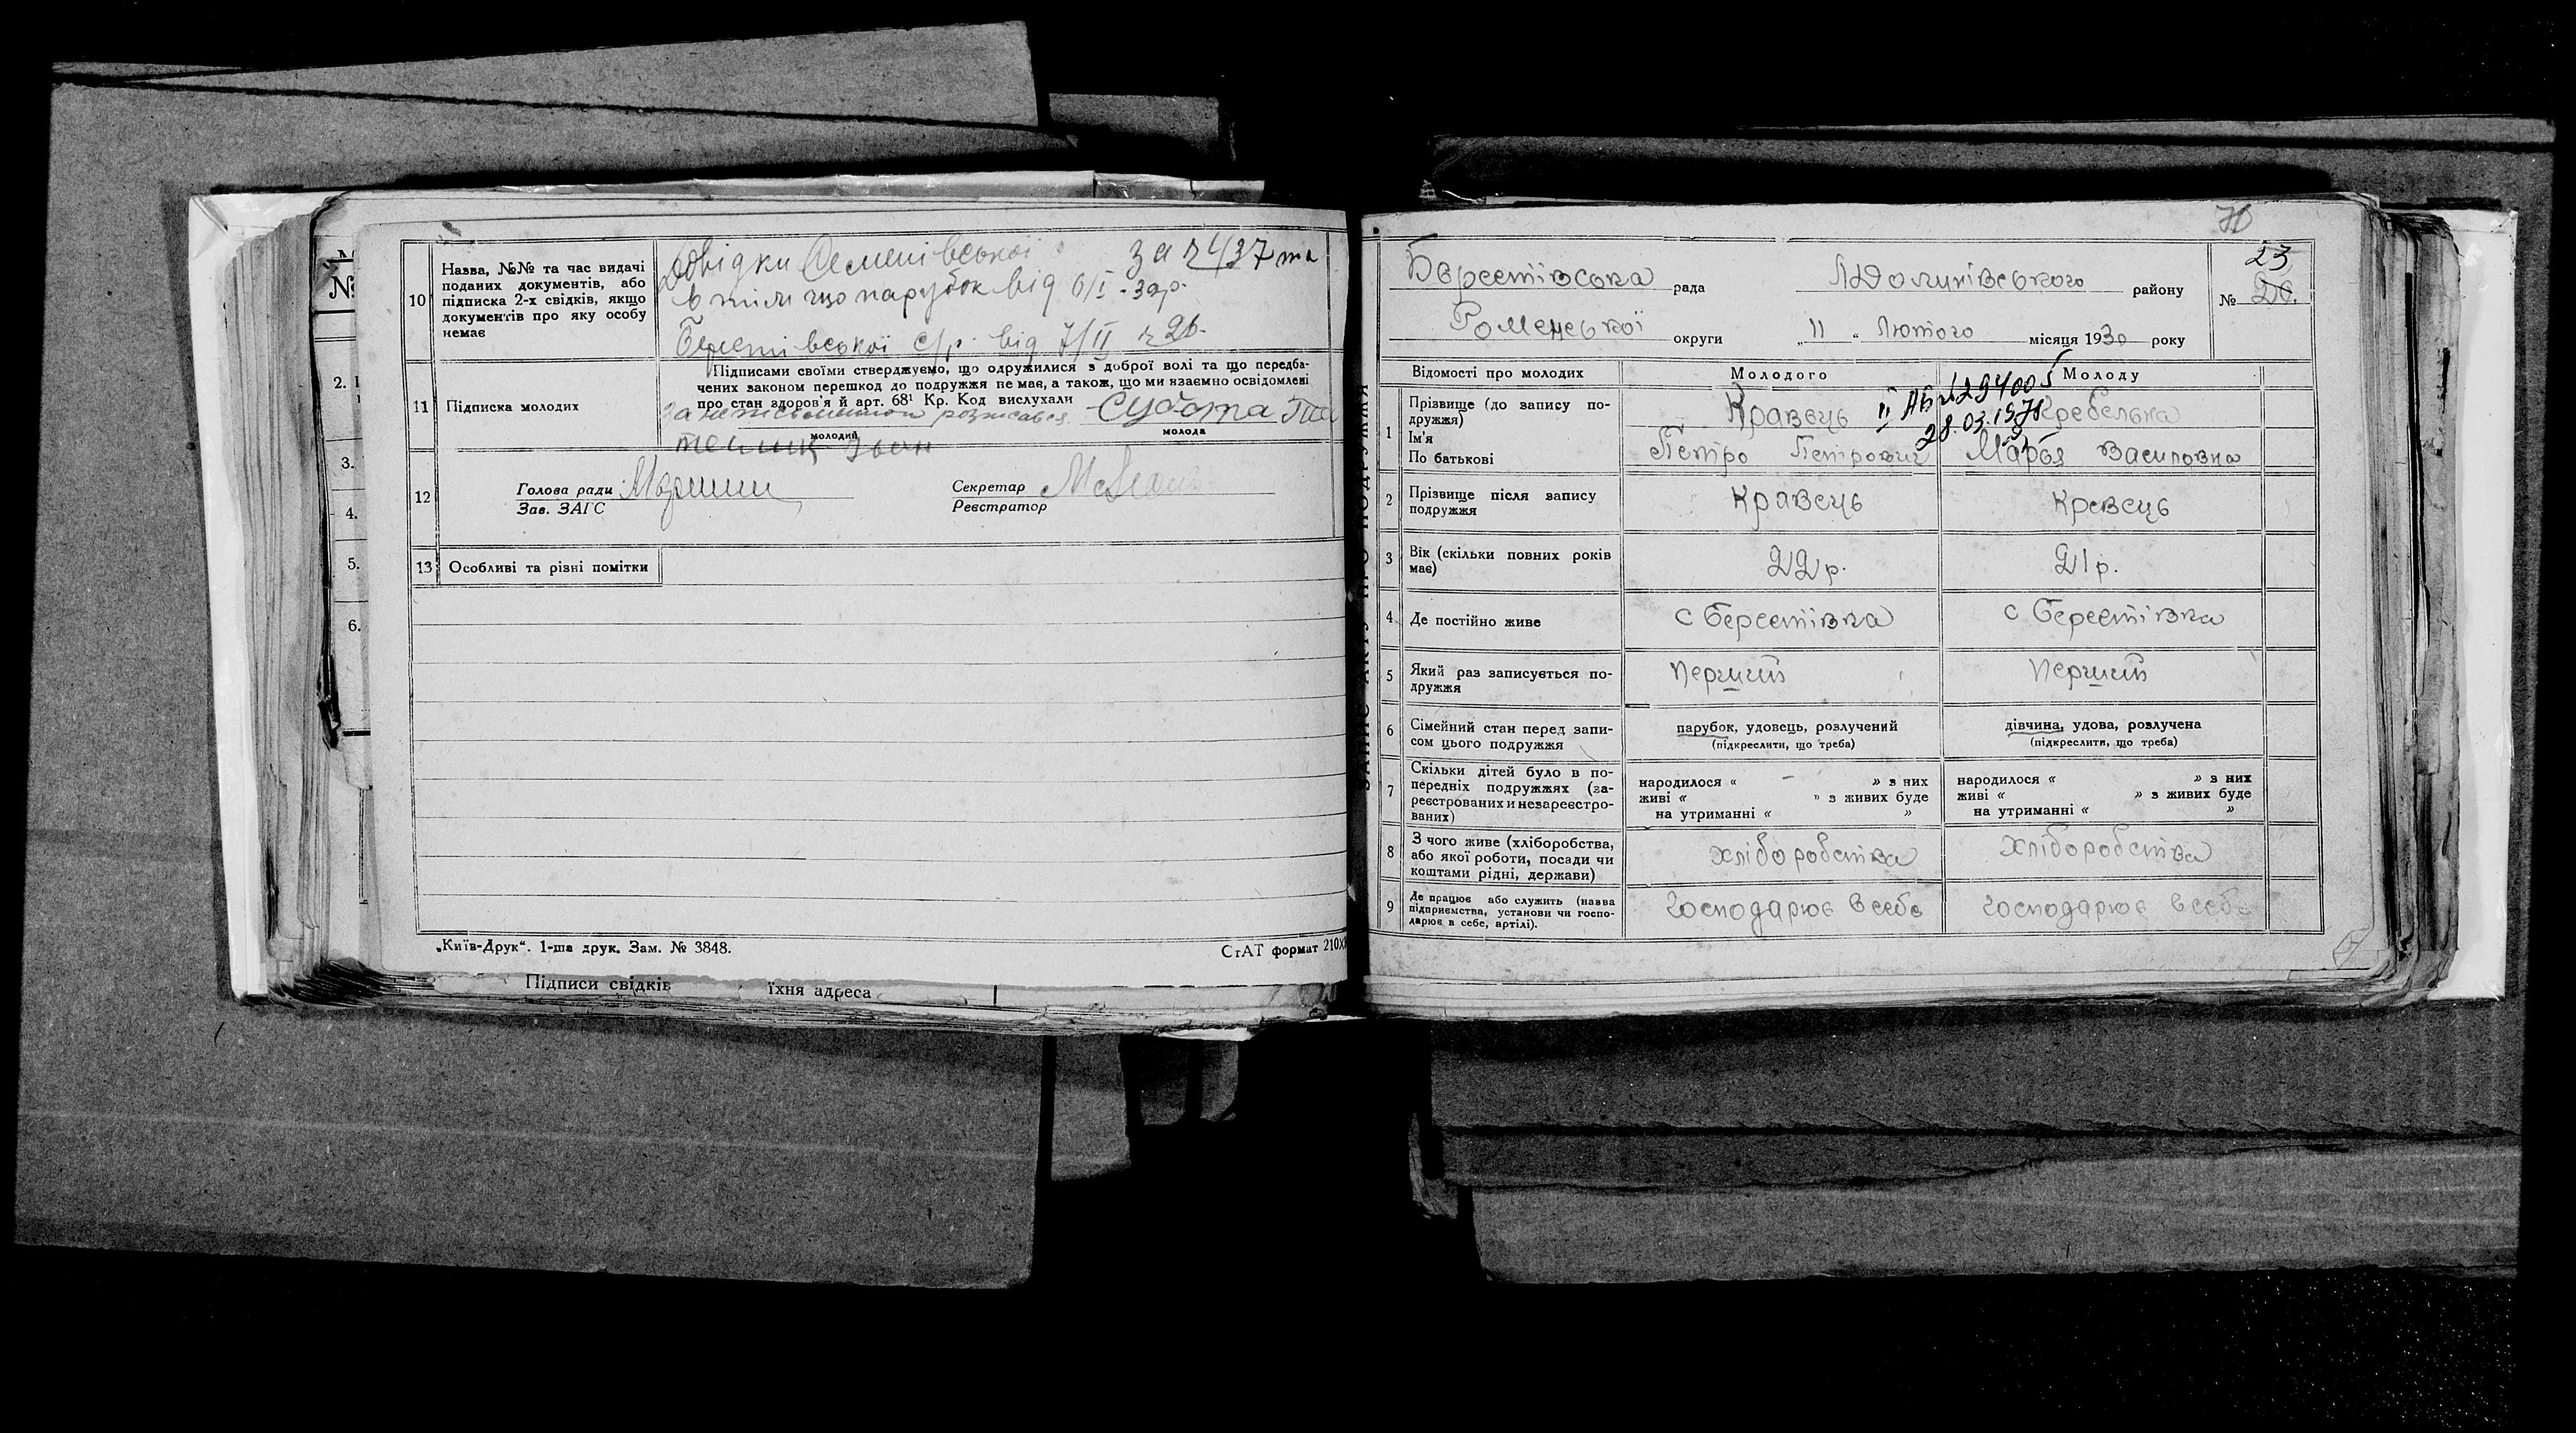 10
Назва, №№ та час видачі
поданих документів, або
підписка 2-х свідків, якщо
документів про яку особу
немає
Довідки за ч 437 та
в тім що парубок від 6/I - 30 р.
Берестівської с/р. від 7/II ч 26.
11
Підписка молодих
Підписами своїми стверджуємо, що одружилися з доброї волі та що передба-
чених законом перешкод до подружжя не має, а також, що ми взаємно освідомлені
про стан здоров'я й арт. 68¹ Кр. Код вислухали
за неписьменного розписався Субота
молодий
молода
Іван
12
Голова ради
Зав. ЗАГС
Секретар
Реєстратор
13
Особливі та різні помітки
„Київ-Друк“. 1-ша друк. Зам. № 3848.
СтАТ формат 210х
Підписи свідків
їхня адреса
№
2.
3.
4.
5.
6.
70
Берестівська рада
району
23
№ 26.
Роменської округи
„11“ Лютого місяця 1930 року
Відомості про молодих
Молодого
Молоду
II АБ №294005
28.03.1978
1
Прізвище (до запису по-
дружжя)
Ім'я
По батькові
Кравець
Гребелька
Петро Петрович
Марья Василовна
2
Прізвище після запису
подружжя
Кравець
Кревець
3
Вік (скільки повних років
має)
22 р.
21 р.
4
Де постійно живе
с Берестівка
с Берестівка
5
Який раз записується по-
дружжя
Перший
Перший
6
Сімейний стан перед запи-
сом цього подружжя
парубок, удовець, розлучений
(підкреслити, що треба)
дівчина, удова, розлучена
(підкреслити, що треба)
7
Скільки дітей було в по-
передніх подружжях (за-
реєстрованих и незареєстро-
ваних)
народилося « – » з них
живі « » з живих буде
на утриманні « »
народилося « » з них
живі « » з живих буде
на утриманні « »
8
З чого живе (хліборобства,
або якої роботи, посади чи
коштами рідні, держави)
хліборобства
хліборобства
9
Де працює або служить (назва
підприємства, установи чи госпо-
дарює в себе, артілі).
господарює в себе
господарює в себе